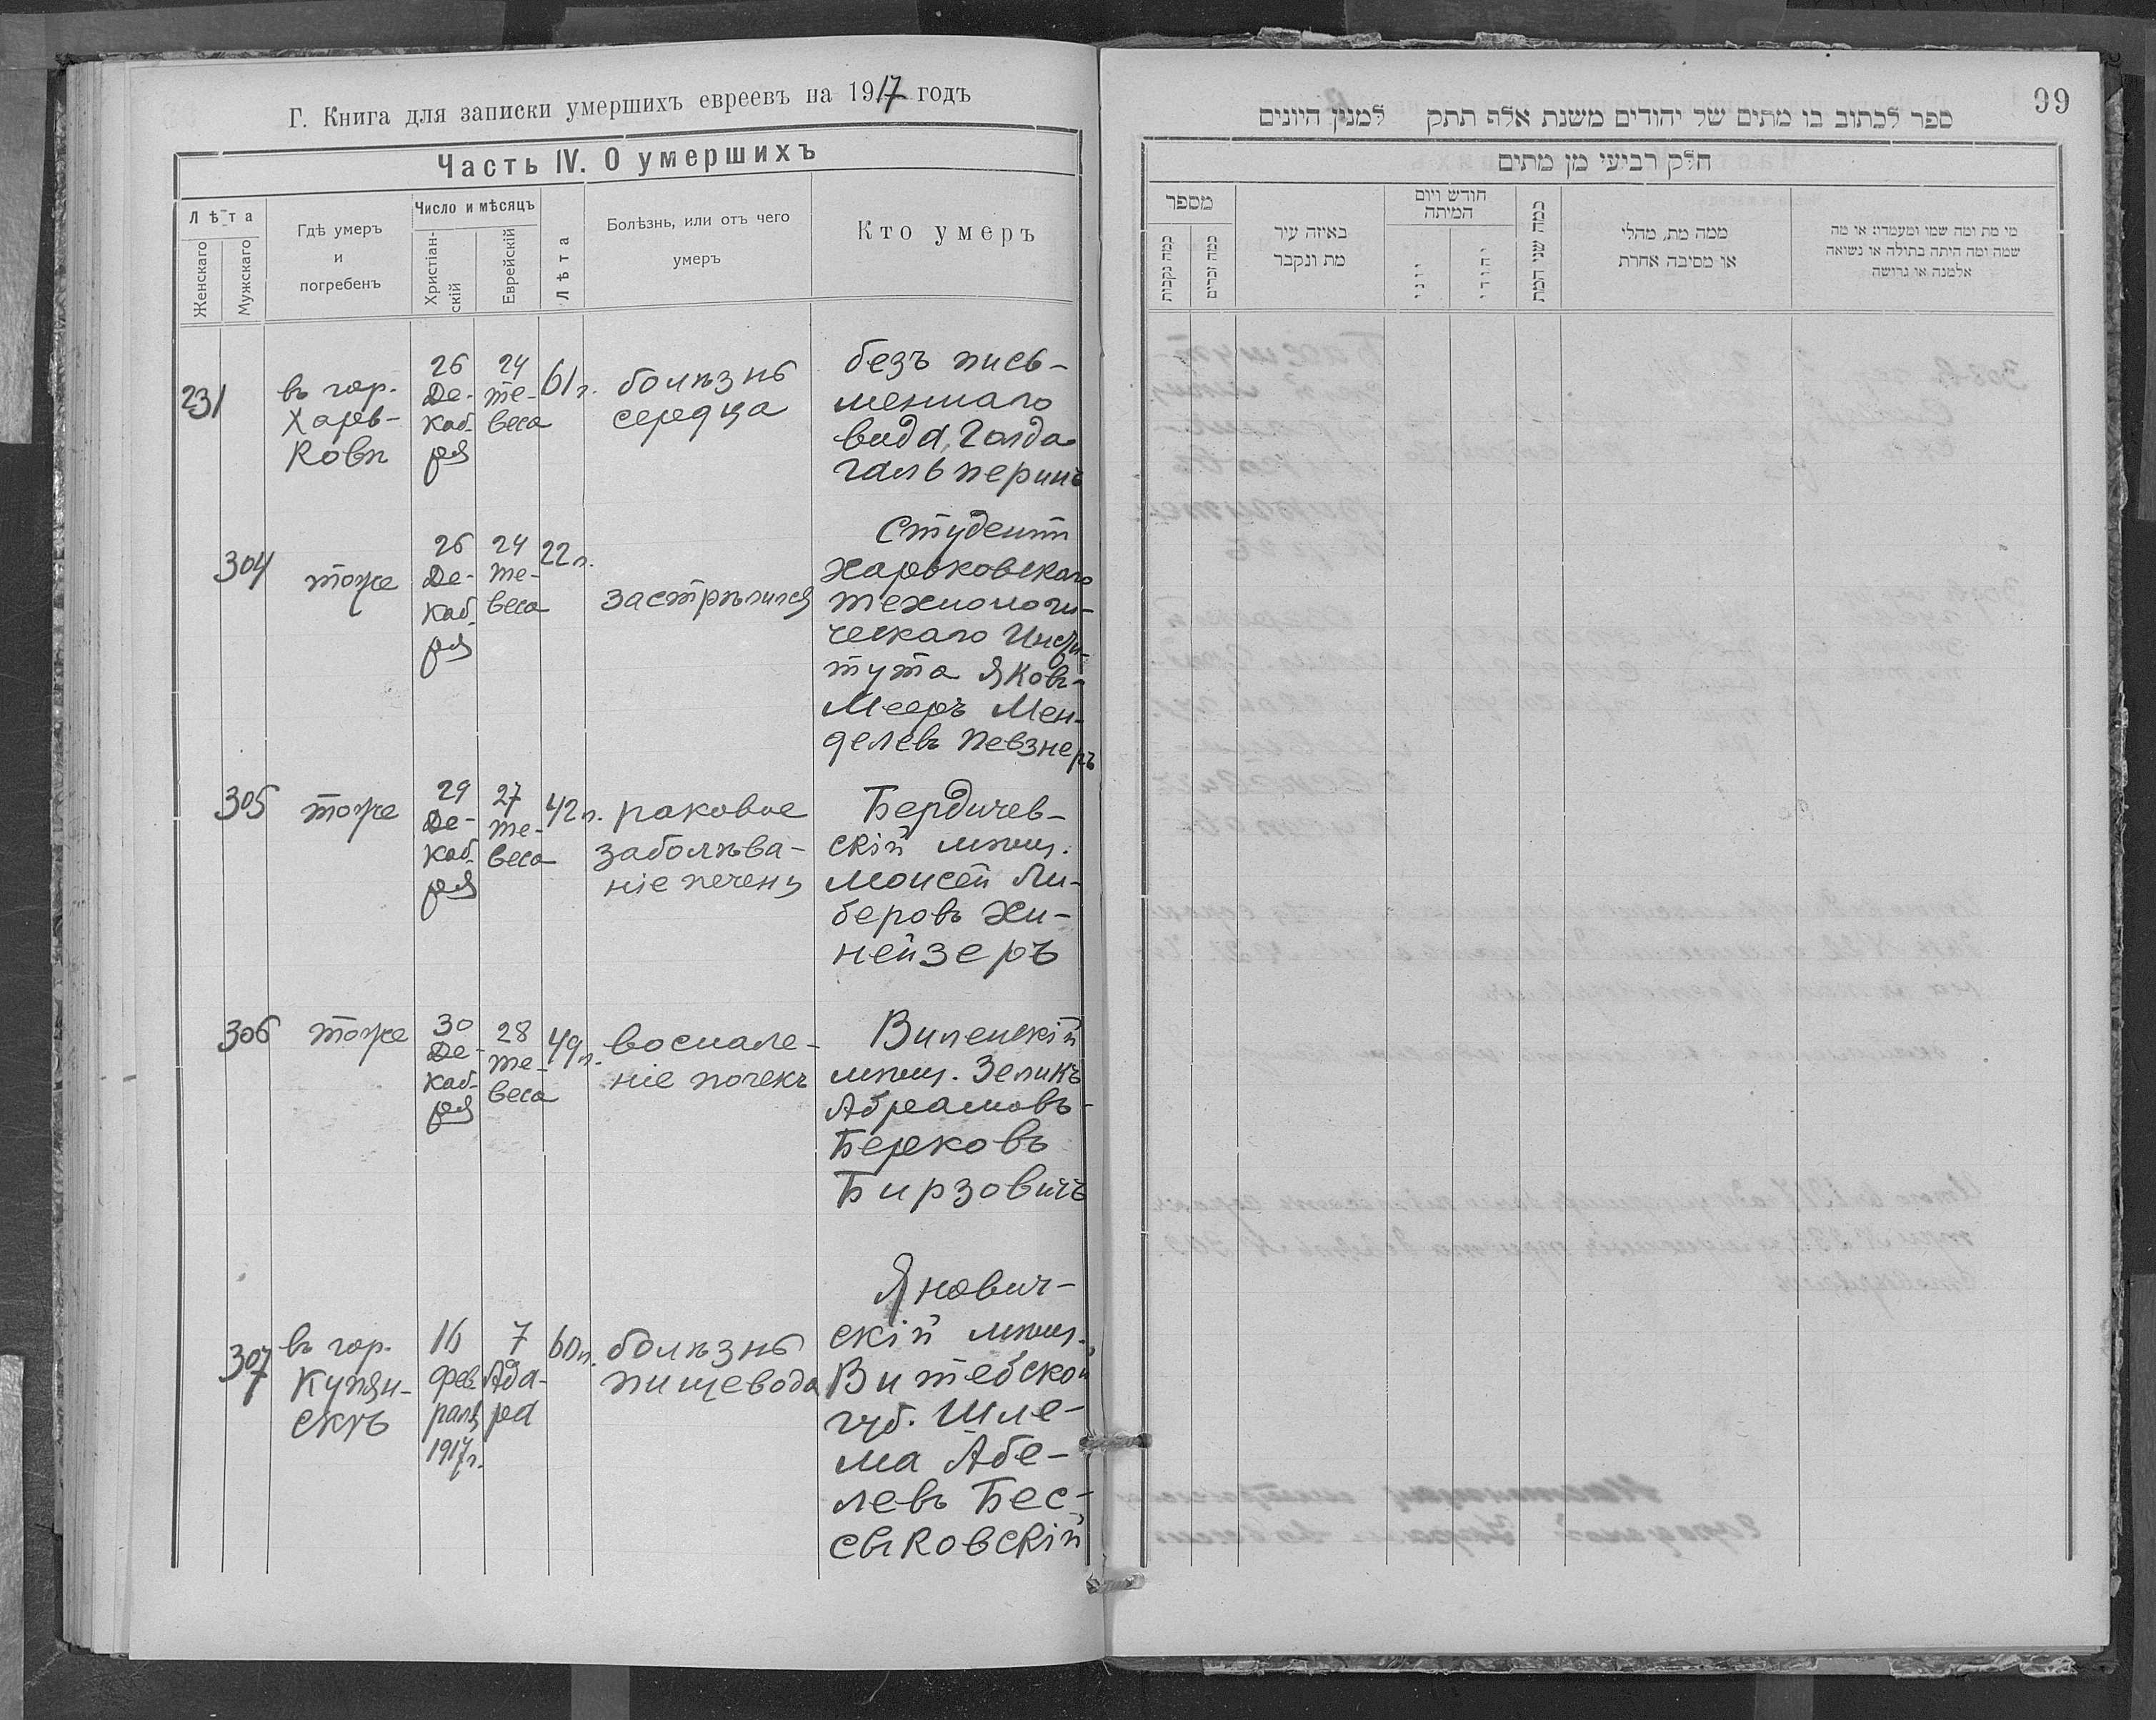 Г. Книга для записки умершихъ евреевъ на 1917 годъ
Часть IV. О умершихъ
Лѣта
Женскаго
Мужскаго
Гдѣ умеръ
и
погребенъ
Число и мѣсяцъ
Христіан-
скій
Еврейскій
Лѣта
Болѣзнь, или отъ чего
умеръ
Кто умеръ
231
въ гор.
Харь-
ковѣ
26
Де-
каб-
ря
24
те-
веса
61 г.
болѣзнь
сердца
безъ пись-
меннаго
вида, Голда
Гальперинъ
304
тоже
26
Де-
каб-
ря
24
те-
веса
22 г.
застрѣлился
Студент
Харьковскаго
технологи-
ческаго Инсти-
тута Яковъ-
Мееръ Мен-
делевъ Певзнеръ
305
тоже
29
Де-
каб-
ря
27
те-
веса
42 г.
раковое
заболѣва-
ніе печени
Бердичев-
скій мѣщ.
Моисей Ли-
беровъ Хи-
нейзеръ
306
тоже
30
Де-
каб-
ря
28
те-
веса
49 г.
воспале-
ніе почекъ
Виленскій
мѣщ. Зеликъ
Абрамовъ-
Берковъ
Бирзовичъ
307
въ гор.
Купян-
скѣ
16
фев-
раля
1917 г.
7
Ада-
ра
60 г.
болѣзнь
пищевода
Янович-
скій мѣщ.,
Витебской
губ. Шле-
ма Абе-
левъ Бес-
сѣковскій
99
ספר לכתוב בו מתים של יהודים משנת אלף תתק למנין היונים
חלק רביעי מן מתים
מספר
כמה נקבות
כמה זכרים
באיזה עיר
מת ונקבר
חודש ויום
המיתה
יוני
יהודי
כמה שני המת
ממה מת, מהלי
או מסיבה אחרת
מי מת ומה שמו ומעמדו: או מה
שמה ומה היתה בתולה או נשואה
אלמנה או גרושה